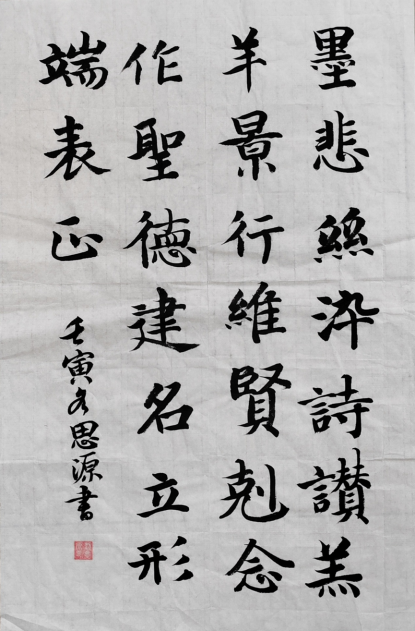 墨悲絲染詩讚羔
羊景行維賢剋念
作聖德建名立形
端表正
壬寅冬思源書